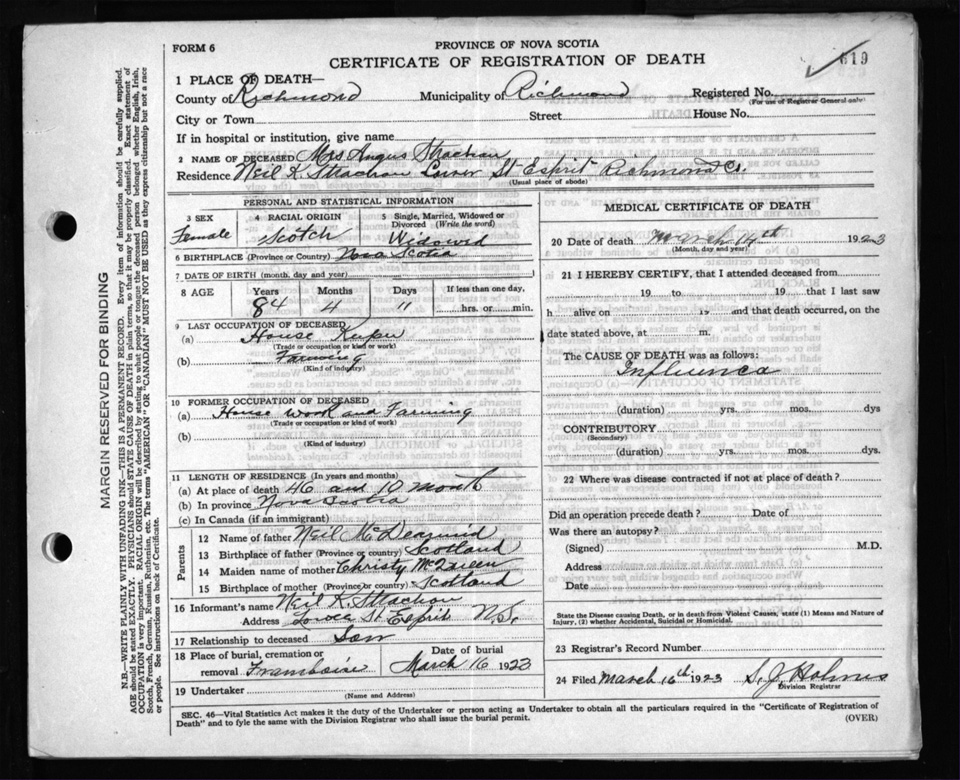 FORM 6
PROVINCE OF NOVA SCOTIA
CERTIFICATE OF REGISTRATION OF DEATH
619
1 PLACE OF DEATH—
County of Richmond Municipality of Richmond Registered No.
(For use of Registrar General only)
City or Town Street House No.
If in hospital or institution, give name
2 NAME OF DECEASED Mrs Angus Strachan
Residence Neil K. Strachan Lower St Esprit Richmond Co.
(Usual place of abode)
PERSONAL AND STATISTICAL INFORMATION
3 SEX 4 RACIAL ORIGIN 5 Single, Married, Widowed or Divorced (Write the word)
Female Scotch Widowed
6 BIRTHPLACE (Province or Country) Nova Scotia
7 DATE OF BIRTH (month, day and year)
8 AGE Years Months Days If less than one day,
84 4 11 hrs. or min.
9 LAST OCCUPATION OF DECEASED
(a) House Keeper
(Trade or occupation or kind or work)
(b) Farming
(Kind of industry)
10 FORMER OCCUPATION OF DECEASED
(a) House work and Farming
(Trade or occupation or kind of work)
(b)
(Kind of industry)
11 LENGTH OF RESIDENCE (In years and months)
(a) At place of death 46 and 10 month
(b) In province Nova Scotia
(c) In Canada (if an immigrant)
Parents
12 Name of father Neil McDearmid
13 Birthplace of father (Province or country) Scotland
14 Maiden name of mother Christy McQueen
15 Birthplace of mother (Province or country) Scotland
16 Informant's name Neil K. Strachan
Address Lower St Esprit N.S.
17 Relationship to deceased Son
18 Place of burial, cremation or removal Framboise Date of burial March 16 1923
19 Undertaker
(Name and Address)
MEDICAL CERTIFICATE OF DEATH
20 Date of death March 14th 1923
(Month, day and year)
21 I HEREBY CERTIFY, that I attended deceased from
19 to 19 that I last saw
h alive on 19 and that death occurred, on the
date stated above, at m.
The CAUSE OF DEATH was as follows:
Influenca
(duration) yrs. mos. dys
CONTRIBUTORY
(Secondary)
(duration) yrs. mos. dys.
22 Where was disease contracted if not at place of death?
Did an operation precede death? Date of
Was there an autopsy?
(Signed) M.D.
Address
Date
State the Disease causing Death, or in death from Violent Causes, state (1) Means and Nature of
Injury, (2) whether Accidental, Suicidal or Homicidal.
23 Registrar's Record Number
24 Filed March 16th 1923 S. J. Holmes
Division Registrar
SEC. 46—Vital Statistics Act makes it the duty of the Undertaker or person acting as Undertaker to obtain all the particulars required in the "Certificate of Registration of
Death" and to fyle the same with the Division Registrar who shall issue the burial permit.
(OVER)
MARGIN RESERVED FOR BINDING
N.B.—WRITE PLAINLY WITH UNFADING INK—THIS IS A PERMANENT RECORD. Every item of information should be carefully supplied.
AGE should be stated EXACTLY. PHYSICIANS should STATE CAUSE OF DEATH in plain terms, so that it may be properly classified. Exact statement of
OCCUPATION is very important. RACIAL ORIGIN will be described by stating to what people or tongue the deceased person belonged whether English, Irish,
Scotch, French, German, Russian, Ruthenian, etc. The terms "AMERICAN" or "CANADIAN" MUST NOT BE USED as they express citizenship but not a race
or people. See instructions on back of Certificate.